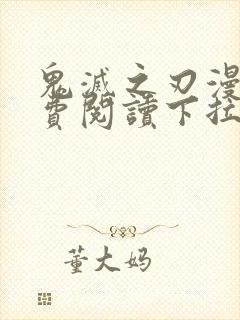 鬼滅之刃漫
費閱讀下拉
董大妈